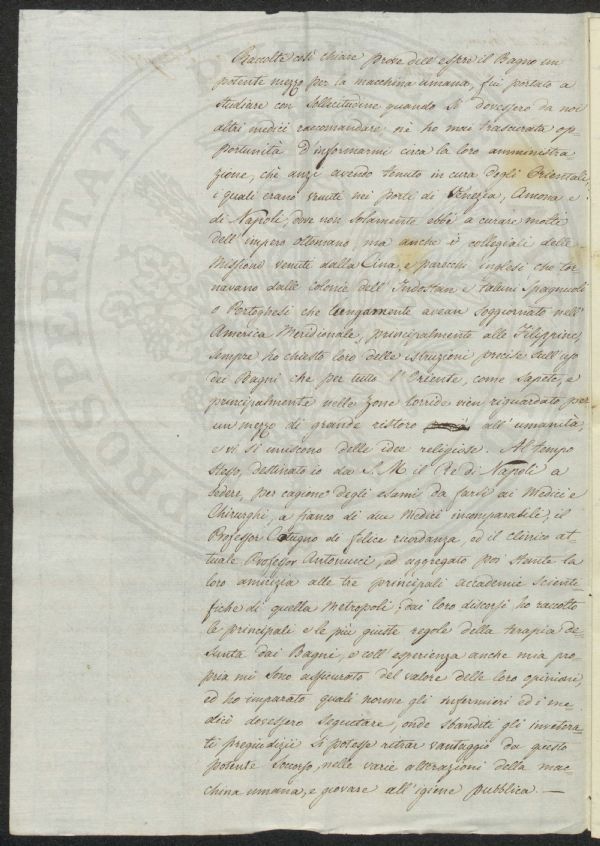 Raccolte così chiare prove dell'essere il Bagno un
potente mezzo per la macchina umana, fui portato a
studiare con sollicitudine quando si dovessero da noi
altri medici raccomandare, nè ho mai trascurata op-
portunità d'informarmi circa la loro amministra
zione, chè anzi avendo tenuto in cura degli Orientali,
i quali erano venuti nei porti di Venezia, Ancona e
di Napoli, dove non solamente ebbi a curare molti
dell'impero ottomano, ma anche i collegiali delle
Missioni venuti dalla Cina, e parecchi inglesi che tor
navano dalle colonie dell'Indostan e taluni Spagnuoli
o Portoghesi che lungamente avean soggiornato nell'
America Meridionale, principalmente alle Filippine,
sempre ho chiesto loro delle istruzioni precise sull'uso
dei Bagni che per tutto l'Oriente, come sapete, e
principalmente nelle zone torride vien riguardato per
un mezzo di grande ristoro all'umanità,
e vi si uniscono delle idee religiose. Al tempo
stesso, destinato io da S. M. il Re di Napoli a
sedere, per cagione degli esami da farsi ai Medici e
Chirurghi, a fianco di due Medici incomparabili, il
Professor Cotugno di felice ricordanza, ed il clinico at-
tuale Professor Antonucci, ed aggregato poi stante la
loro amicizia alle tre principali accademie scienti-
fiche di quella Metropoli, dai loro discorsi ho raccolto
le principali e le più giuste regole della terapia de-
sunta dai Bagni, e coll'esperienza anche mia pro-
pria mi sono assicurato del valore delle loro opinioni,
ed ho imparato quali norme gli infermieri ed i me-
dici dovessero seguitare, onde sbanditi gli invetera-
ti pregiudizii si potesse ritrar vantaggio da questo
potente soccorso, nelle varie alterazioni della mac-
china umana, e giovare all'igiene pubblica. —
PROSPERITATI